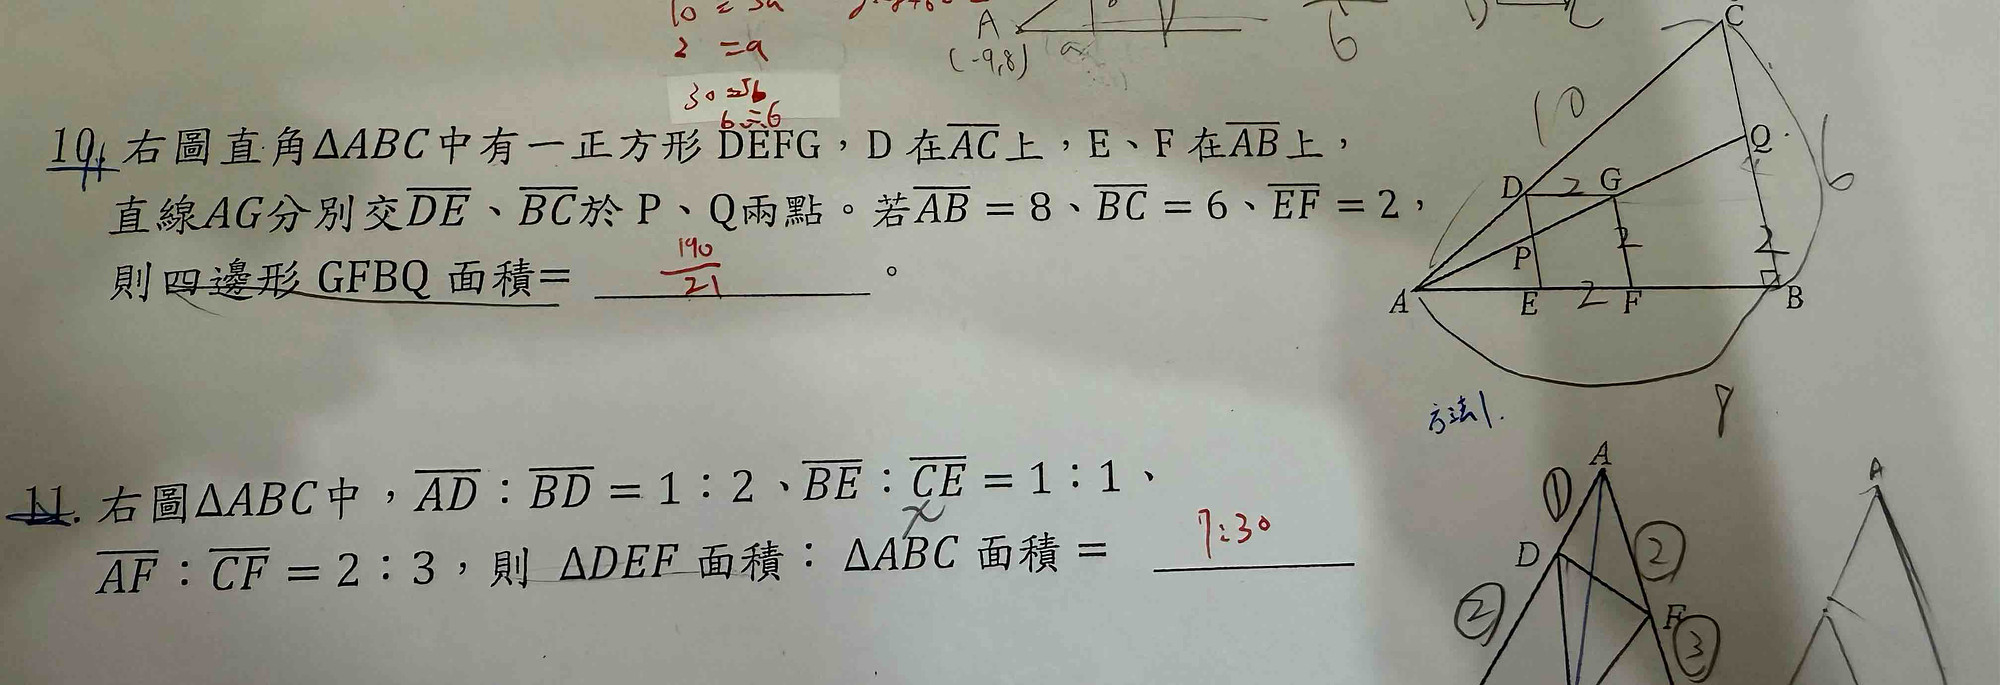 10 = 5a
2 = a
A
(-9,8)
a
6
30=5b
6=b
10. 右圖直角ΔABC中有一正方形 DEFG，D 在AC上，E、F 在AB上，
直線AG分別交DE、BC於 P、Q兩點。若AB = 8、BC = 6、EF = 2，
則四邊形 GFBQ 面積= 190/21 。
C
10
Q
6
D 2 G
2 2
P
A E 2 F B
8
方法1.
11. 右圖ΔABC中，AD：BD = 1：2、BE：CE = 1：1、
x
AF：CF = 2：3，則 ΔDEF 面積：ΔABC 面積 = 7:30
A
①
D ②
② F ③
A